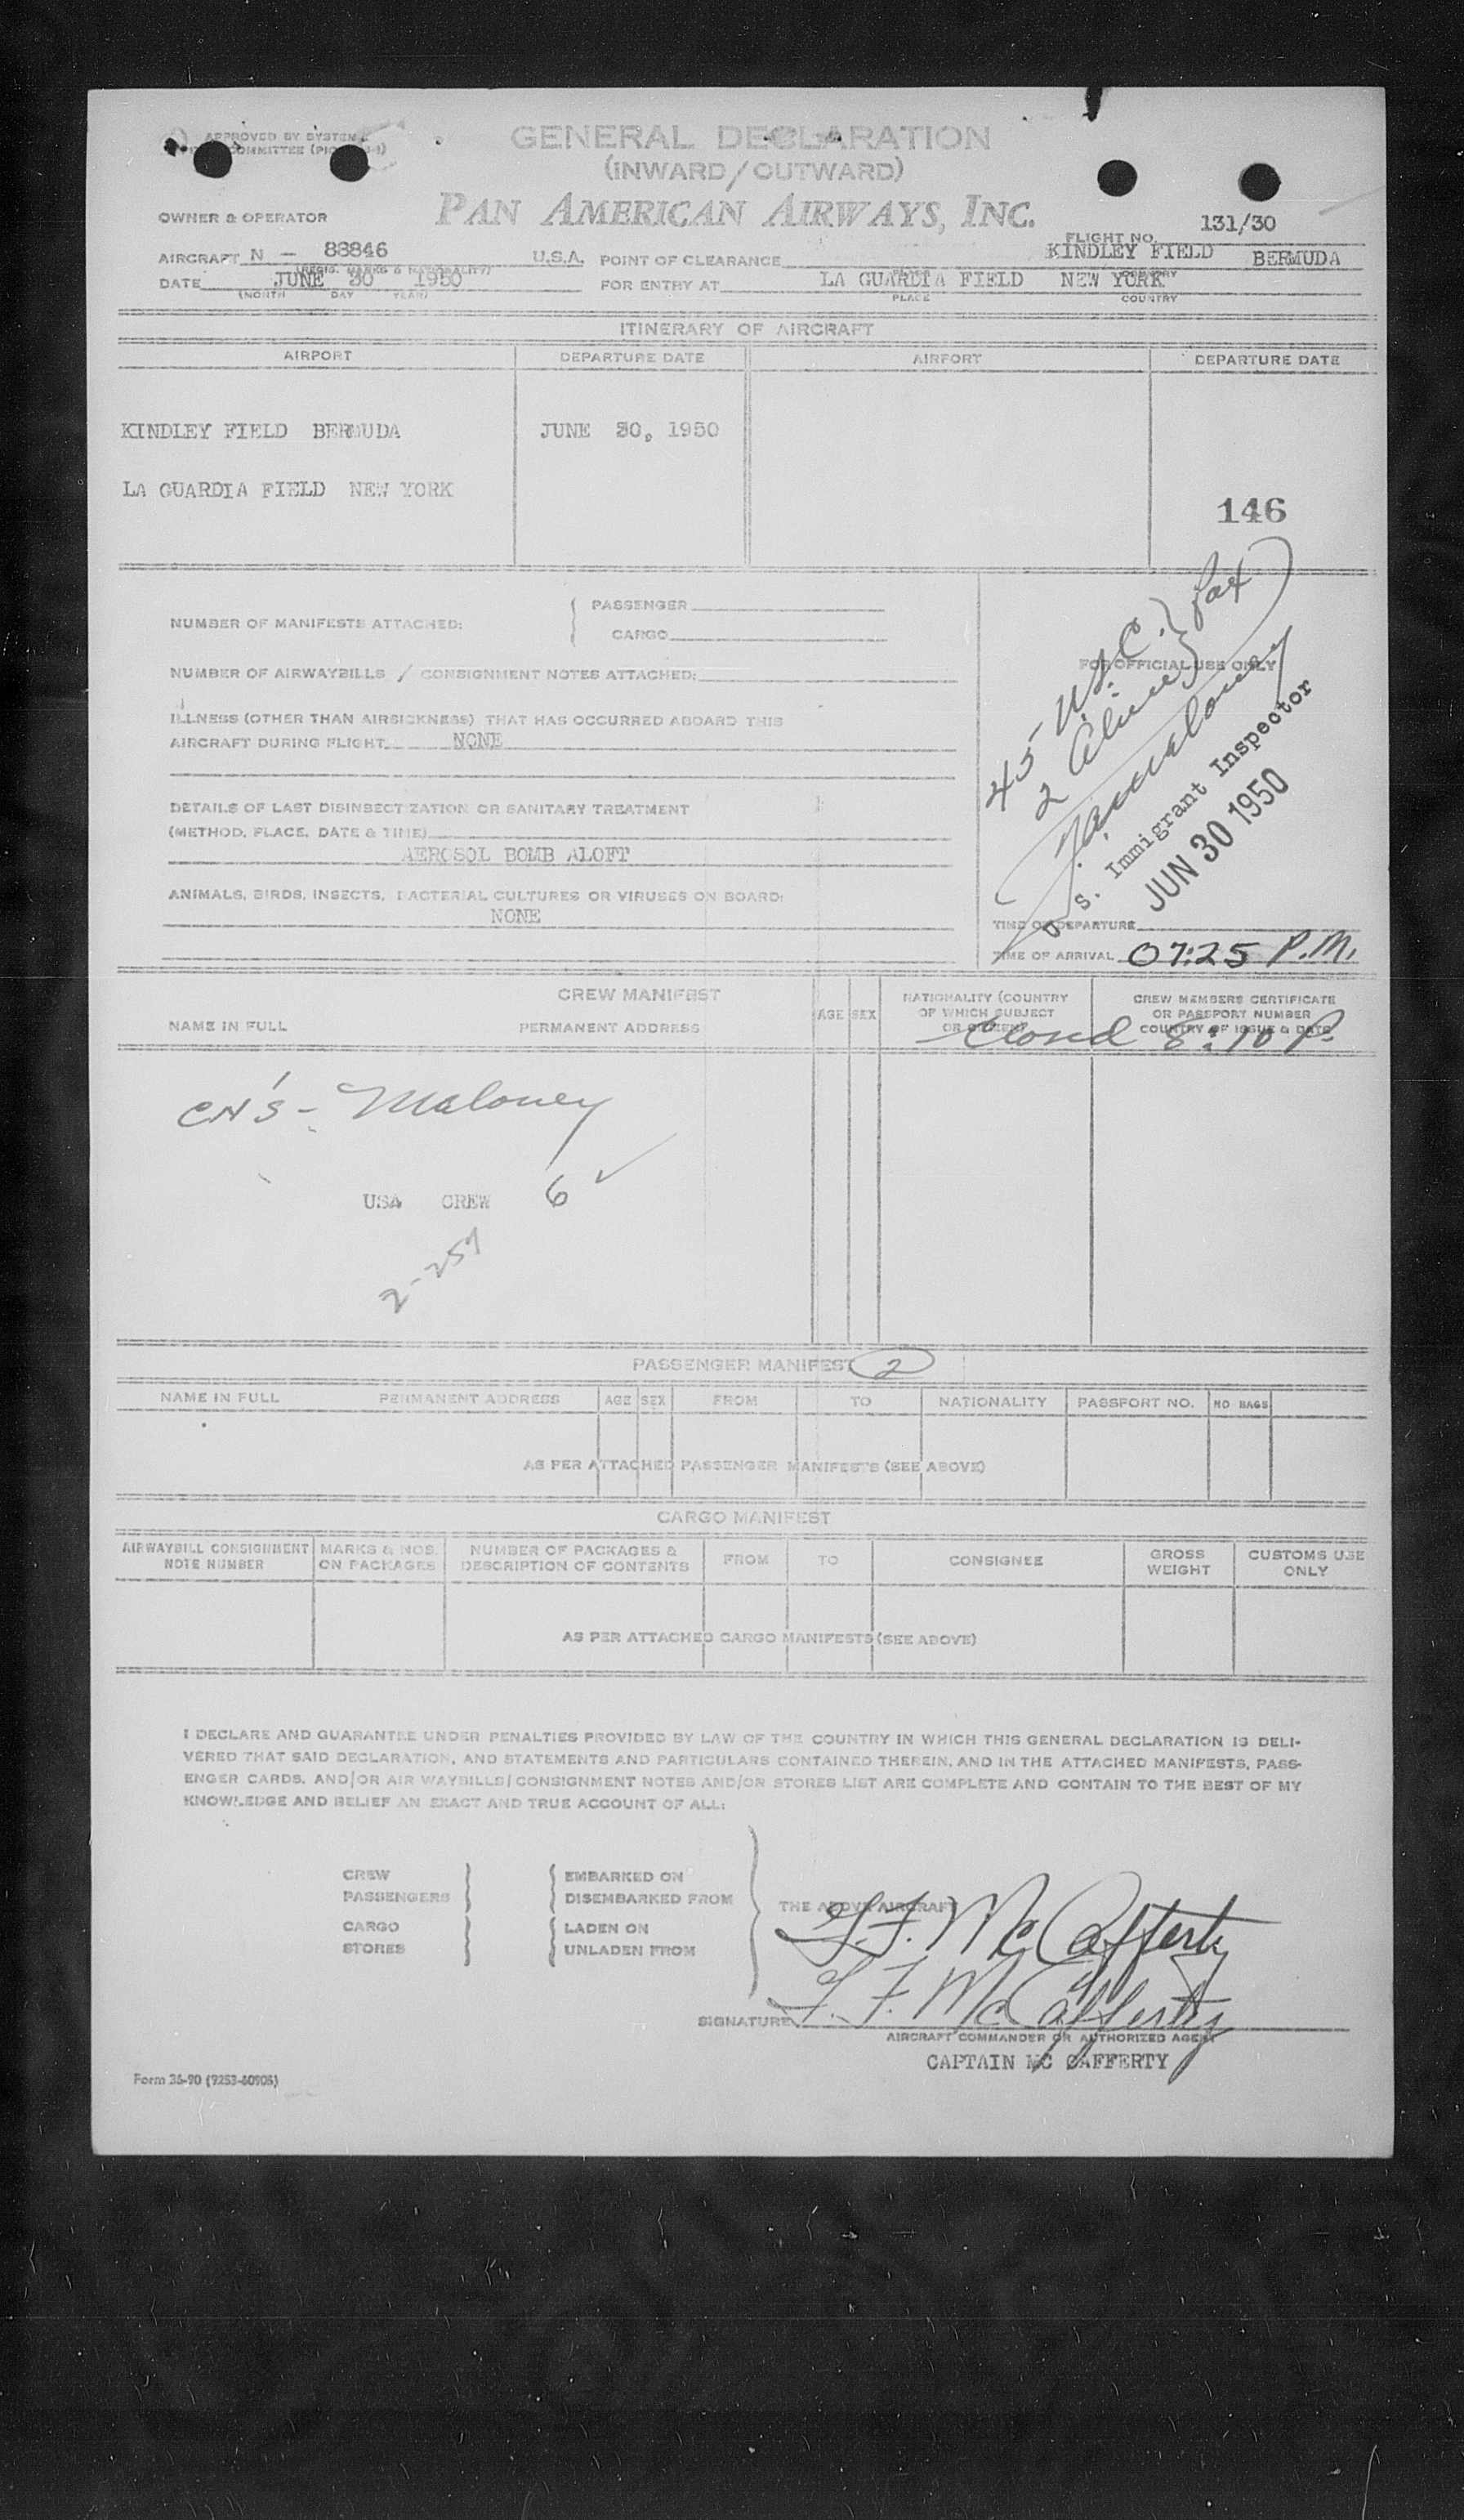 APPROVED BY SYSTEM
COMMITTEE
GENERAL DECLARATION
(INWARD/OUTWARD)
PAN AMERICAN AIRWAYS, INC.
OWNER & OPERATOR
FLIGHT NO. 131/30
AIRCRAFT N - 88846 U.S.A. POINT OF CLEARANCE KINDLEY FIELD BERMUDA
(REGIS. MARKS & NATIONALITY)
DATE JUNE 30 1950 FOR ENTRY AT LA GUARDIA FIELD NEW YORK
(MONTH DAY YEAR) PLACE COUNTRY
ITINERARY OF AIRCRAFT
AIRPORT DEPARTURE DATE AIRPORT DEPARTURE DATE
KINDLEY FIELD BERMUDA JUNE 30, 1950
LA GUARDIA FIELD NEW YORK
146
NUMBER OF MANIFESTS ATTACHED: { PASSENGER
CARGO
NUMBER OF AIRWAYBILLS / CONSIGNMENT NOTES ATTACHED:
FOR OFFICIAL USE ONLY
45 U.S.C. } Pax
2 Aliens
Maloney
U.S. Immigrant Inspector
JUN 30 1950
ILLNESS (OTHER THAN AIRSICKNESS) THAT HAS OCCURRED ABOARD THIS
AIRCRAFT DURING FLIGHT NONE
DETAILS OF LAST DISINSECTIZATION OR SANITARY TREATMENT
(METHOD, PLACE, DATE & TIME)
AEROSOL BOMB ALOFT
ANIMALS, BIRDS, INSECTS, BACTERIAL CULTURES OR VIRUSES ON BOARD:
NONE
TIME OF DEPARTURE
TIME OF ARRIVAL 07:25 P.M.
CREW MANIFEST
NAME IN FULL PERMANENT ADDRESS AGE SEX NATIONALITY (COUNTRY OF WHICH SUBJECT OR CITIZEN) CREW MEMBERS CERTIFICATE OR PASSPORT NUMBER COUNTRY OF ISSUE & DATE
Closed 8:10 P.
CN'S - Maloney
USA CREW 6 ✓
2-257
PASSENGER MANIFEST 2
NAME IN FULL PERMANENT ADDRESS AGE SEX FROM TO NATIONALITY PASSPORT NO. NO BAGS
AS PER ATTACHED PASSENGER MANIFESTS (SEE ABOVE)
CARGO MANIFEST
AIRWAYBILL CONSIGNMENT NOTE NUMBER MARKS & NOS. ON PACKAGES NUMBER OF PACKAGES & DESCRIPTION OF CONTENTS FROM TO CONSIGNEE GROSS WEIGHT CUSTOMS USE ONLY
AS PER ATTACHED CARGO MANIFESTS (SEE ABOVE)
I DECLARE AND GUARANTEE UNDER PENALTIES PROVIDED BY LAW OF THE COUNTRY IN WHICH THIS GENERAL DECLARATION IS DELI-
VERED THAT SAID DECLARATION, AND STATEMENTS AND PARTICULARS CONTAINED THEREIN, AND IN THE ATTACHED MANIFESTS, PASS-
ENGER CARDS, AND/OR AIR WAYBILLS/CONSIGNMENT NOTES AND/OR STORES LIST ARE COMPLETE AND CONTAIN TO THE BEST OF MY
KNOWLEDGE AND BELIEF AN EXACT AND TRUE ACCOUNT OF ALL:
CREW } { EMBARKED ON
PASSENGERS DISEMBARKED FROM } THE ABOVE AIRCRAFT
CARGO } { LADEN ON
STORES UNLADEN FROM
F. F. McCafferty
SIGNATURE F. F. McCafferty
AIRCRAFT COMMANDER OR AUTHORIZED AGENT
CAPTAIN MC CAFFERTY
Form 36-90 (9253-60905)